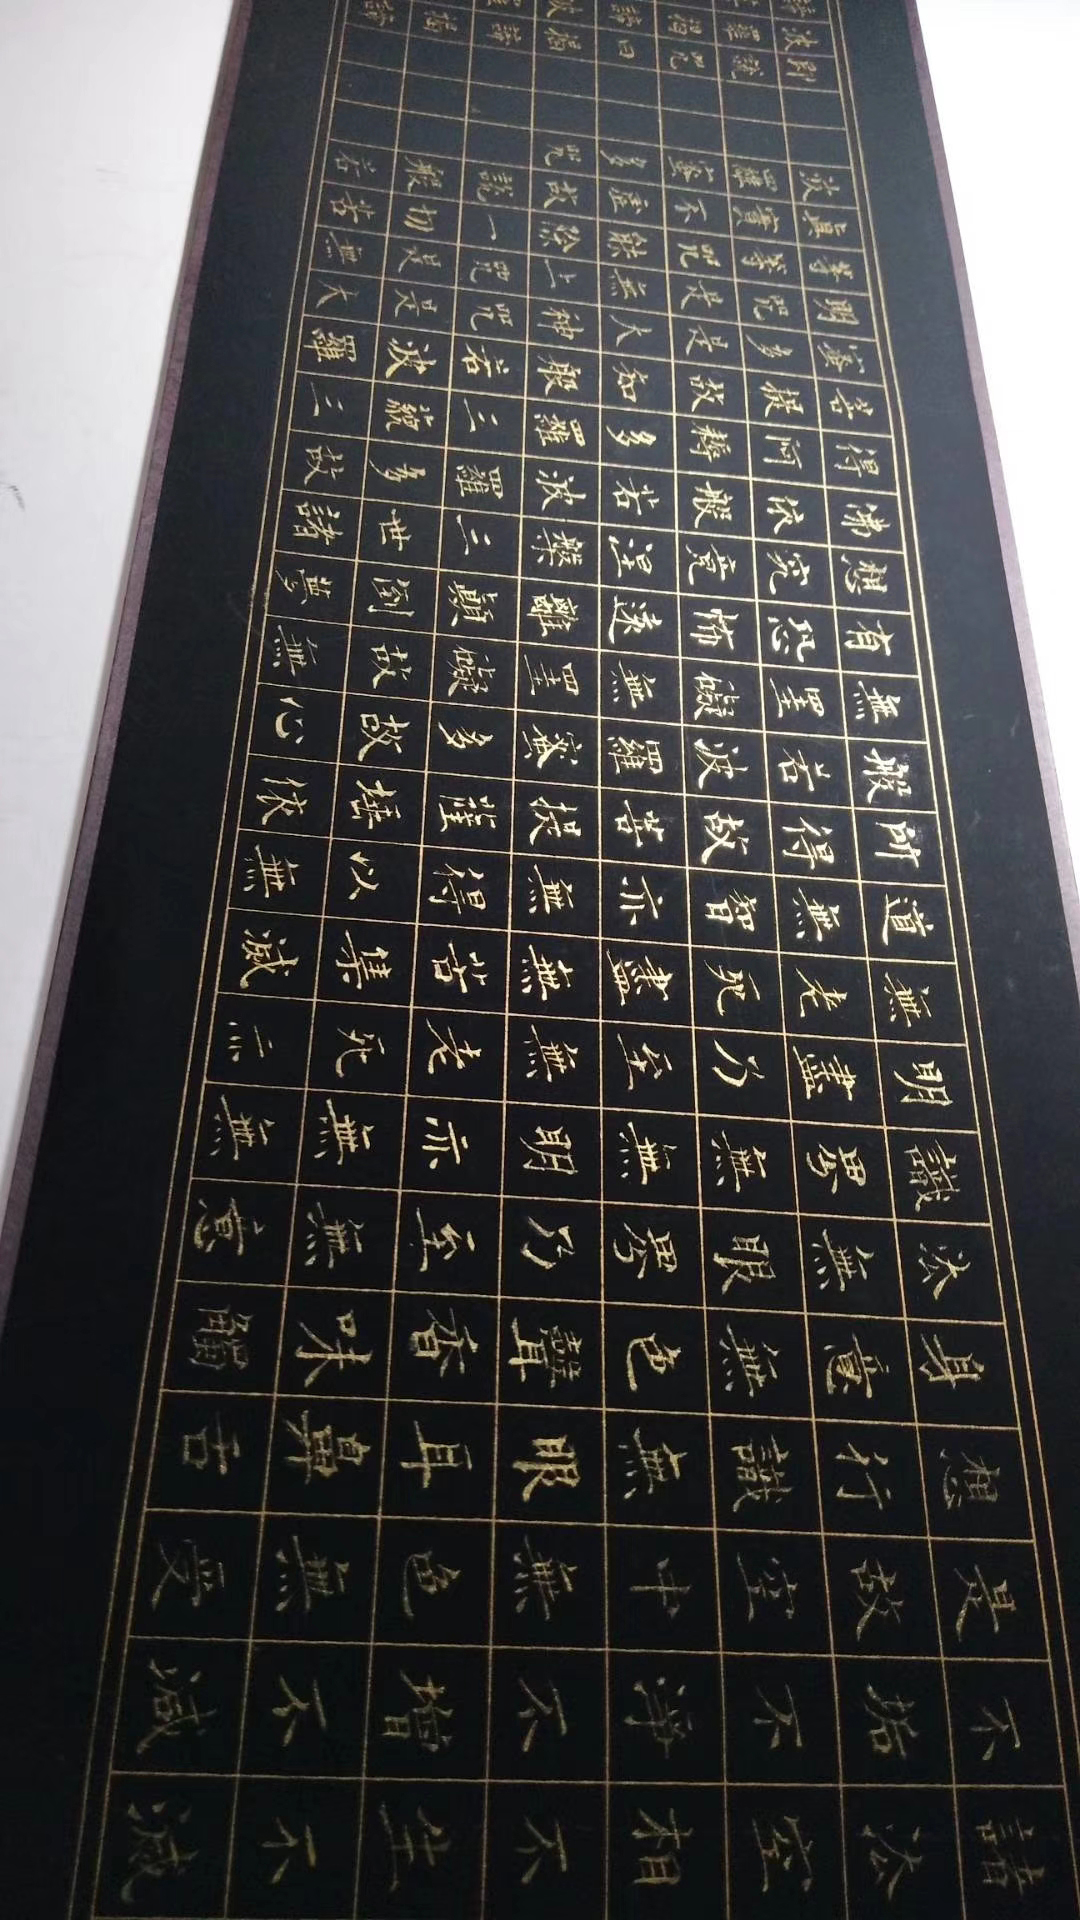 諸法空相不生不滅
不垢不淨不增不減
是故空中無色無受
想行識無眼耳鼻舌
身意無色聲香味觸
法無眼界乃至無意
識界無無明亦無無
明盡乃至無老死亦
無老死盡無苦集滅
道無智亦無得以無
所得故菩提薩埵依
般若波羅蜜多故心
無罣礙無罣礙故無
有恐怖遠離顛倒夢
想究竟涅槃三世諸
佛依般若波羅多故
得阿耨多羅三藐三
菩提故知般若波羅
蜜多是大神咒是大
明咒是無上咒是無
等等咒能除一切苦
真實不虛故說般若
波羅蜜多咒
即說咒曰揭諦揭諦
波羅揭諦波羅